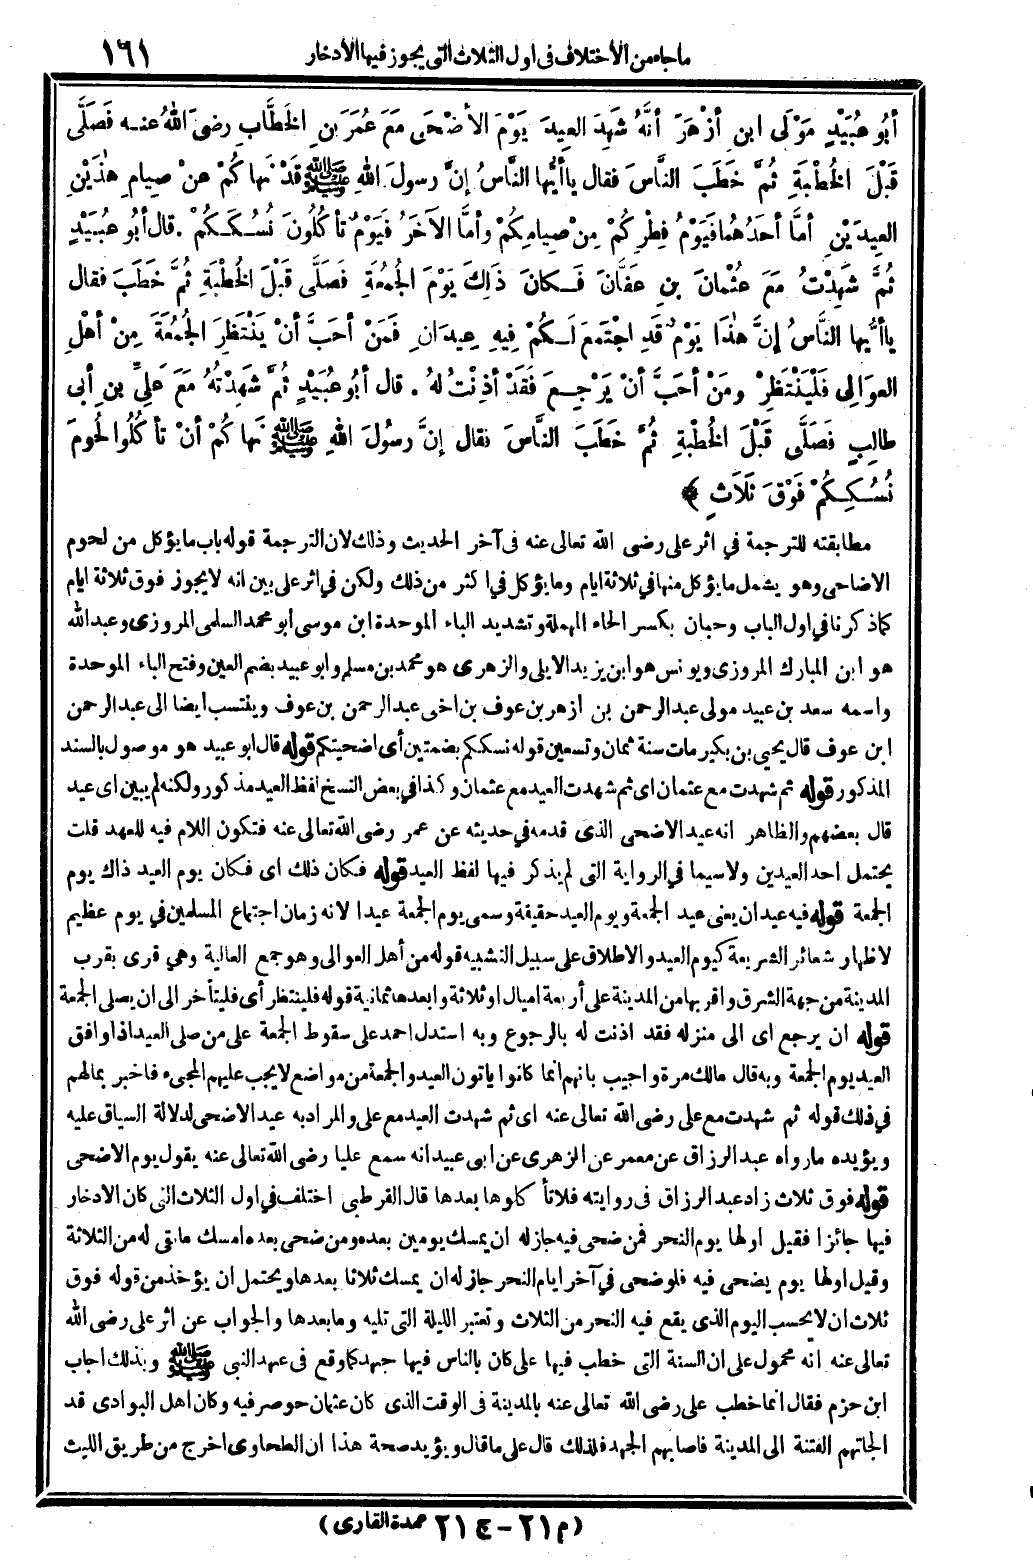 ما جاء من الأختلاف في اول الثلاث التى يجوز فيها الأدخار ١٦١
أبُو عُبَيْدٍ مَوْلَى ابنِ أزْهَرَ أنَّهُ شَهِدَ العِيدَ يَوْمَ الأضْحَى مَعَ عُمَرَ بنِ الخَطَّابِ رضىَ اللهُ عنه فَصَلَّى
قَبْلَ الخُطْبَةِ ثُمَّ خَطَبَ النَّاسَ فقال يا أيُّها النَّاسُ إنَّ رسولَ اللهِ ﷺ قَدْ نَهاكُمْ عنْ صِيامِ هٰذَيْنِ
العِيدَيْنِ أمَّا أحَدُهُما فَيَوْمُ فِطْرِكُمْ مِنْ صِيامِكُمْ وأمَّا الآخَرُ فَيَوْمٌ تأكُلُونَ نُسُكَكُمْ . قال أبُو عُبَيْدٍ
ثُمَّ شَهِدْتُ مَعَ عُثْمانَ بنِ عَفَّانَ فَكانَ ذٰلِكَ يَوْمَ الجُمعَةِ فَصَلَّى قَبْلَ الخُطْبَةِ ثُمَّ خَطَبَ فقال
يا أيُّها النَّاسُ إنَّ هٰذَا يَوْمٌ قَدِ اجْتَمَعَ لَكُمْ فِيهِ عِيدَانِ فَمَنْ أحَبَّ أنْ يَنْتَظِرَ الجُمُعَةَ مِنْ أهْلِ
العوالِى فَلْيَنْتَظِرْ ومَنْ أحَبَّ أنْ يَرْجِعَ فَقَدْ أذِنْتُ لهُ . قال أبُو عُبَيْدٍ ثُمَّ شَهِدْتُهُ مَعَ عَلِيِّ بنِ أبى
طالِبٍ فَصَلَّى قَبْلَ الخُطْبَةِ ثُمَّ خَطَبَ النَّاسَ فقال إنَّ رسُولَ اللهِ ﷺ نَهاكُمْ أنْ تأكُلُوا لُحومَ
نُسُكِكُمْ فَوْقَ ثَلَاثٍ ﴾
مطابقته للترجمة في اثر على رضى الله تعالى عنه فى آخر الحديث وذلك لان الترجمة قوله باب ما يؤكل من لحوم
الاضاحى وهو يشمل ما يؤكل منها في ثلاثة ايام وما يؤكل في اكثر من ذلك ولكن في اثر على بين انه لا يجوز فوق ثلاثة ايام
كما ذكرنا في اول الباب وحبان بكسر الحاء المهملة وتشديد الباء الموحدة ابن موسى أبو محمد السلمى المروزى وعبد الله
هو ابن المبارك المروزى ويونس هو ابن يزيد الايلى والزهرى هو محمد بن مسلم وابو عبيد بضم العين وفتح الباء الموحدة
واسمه سعد بن عبيد مولى عبد الرحمن بن ازهر بن عوف بن اخى عبد الرحمن بن عوف وينتسب أيضا الى عبد الرحمن
ابن عوف قال يحيى بن بكير مات سنة ثمان وتسعين قوله نسككم بضمتين أى اضحيتكم قوله قال ابو عبيد هو موصول بالسند
المذكور قوله ثم شهدت مع عثمان اى ثم شهدت العيد مع عثمان وكذا في بعض النسخ لفظ العيد مذكور ولكنه لم يبين اى عيد
قال بعضهم والظاهر انه عيد الاضحى الذى قدمه في حديثه عن عمر رضى الله تعالى عنه فتكون اللام فيه للعهد قلت
يحتمل احد العيدين ولا سيما في الرواية التى لم يذكر فيها لفظ العيد قوله فكان ذلك اى فكان يوم العيد ذاك يوم
الجمعة قوله فيه عيدان يعنى عيد الجمعة ويوم العيد حقيقة وسمى يوم الجمعة عيدا لانه زمان اجتماع المسلمين في يوم عظيم
لاظهار شعائر الشريعة كيوم العيد والاطلاق على سبيل التشبيه قوله من أهل العوالى وهو جمع العالية وهي قرى بقرب
المدينة من جهة الشرق واقربها من المدينة على أربعة اميال او ثلاثة وابعدها ثمانية قوله فلينتظر أى فليتأخر الى ان يصلى الجمعة
قوله ان يرجع اى الى منزله فقد اذنت له بالرجوع وبه استدل احمد على سقوط الجمعة على من صلى العيد اذا وافق
العيد يوم الجمعة وبه قال مالك مرة واجيب بانهم انما كانوا ياتون العيد والجمعة من مواضع لا يجب عليهم المجىء فاخبر بمالهم
في ذلك قوله ثم شهدت مع على رضى الله تعالى عنه اى ثم شهدت العيد مع على والمراد به عيد الاضحى لدلالة السياق عليه
ويؤيده ما رواه عبد الرزاق عن معمر عن الزهرى عن ابى عبيد انه سمع عليا رضى الله تعالى عنه يقول يوم الاضحى
قوله فوق ثلاث زاد عبد الرزاق فى روايته فلا تأكلوها بعدها قال القرطبى اختلف في اول الثلاث التى كان الادخار
فيها جائزا فقيل اولها يوم النحر فمن ضحى فيه جاز له ان يمسك يومين بعده ومن ضحى بعده امسك ما بقى له من الثلاثة
وقيل اولها يوم يضحى فيه فلو ضحى في آخر ايام النحر جاز له ان يمسك ثلاثا بعدها ويحتمل ان يؤخذ من قوله فوق
ثلاث ان لا يحسب اليوم الذى يقع فيه النحر من الثلاث وتعتبر الليلة التى تليه وما بعدها والجواب عن اثر على رضى الله
تعالى عنه انه محمول على ان السنة التى خطب فيها على كان بالناس فيها جهد كما وقع فى عهد النبى ﷺ وبذلك اجاب
ابن حزم فقال انما خطب على رضى الله تعالى عنه بالمدينة فى الوقت الذى كان عثمان حوصر فيه وكان اهل البوادى قد
الجاتهم الفتنة الى المدينة فاصابهم الجهد فلذلك قال على ما قال ويؤيد صحة هذا ان الطحاوى اخرج من طريق الليث
(م ٢١ - ج ٢١ عمدة القارى)